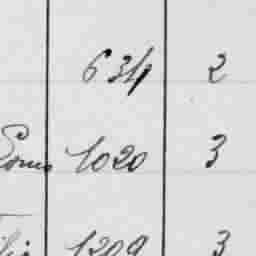 634 2
1020 3
1209 3